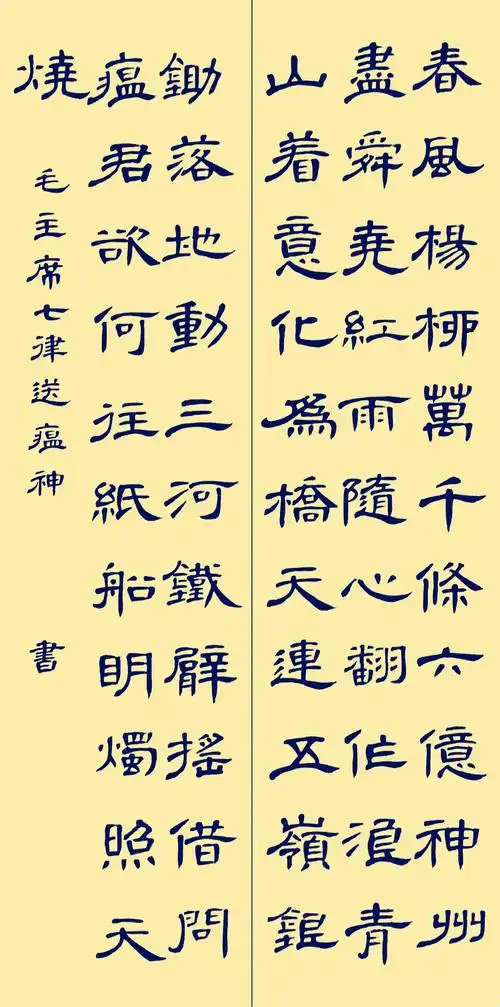 春風楊柳萬千條六億神州
盡舜堯紅雨隨心翻作浪青
山着意化爲橋天連五嶺銀
鋤落地動三河鐵臂搖借問
瘟君欲何往紙船明燭照天
燒
毛主席七律送瘟神 書